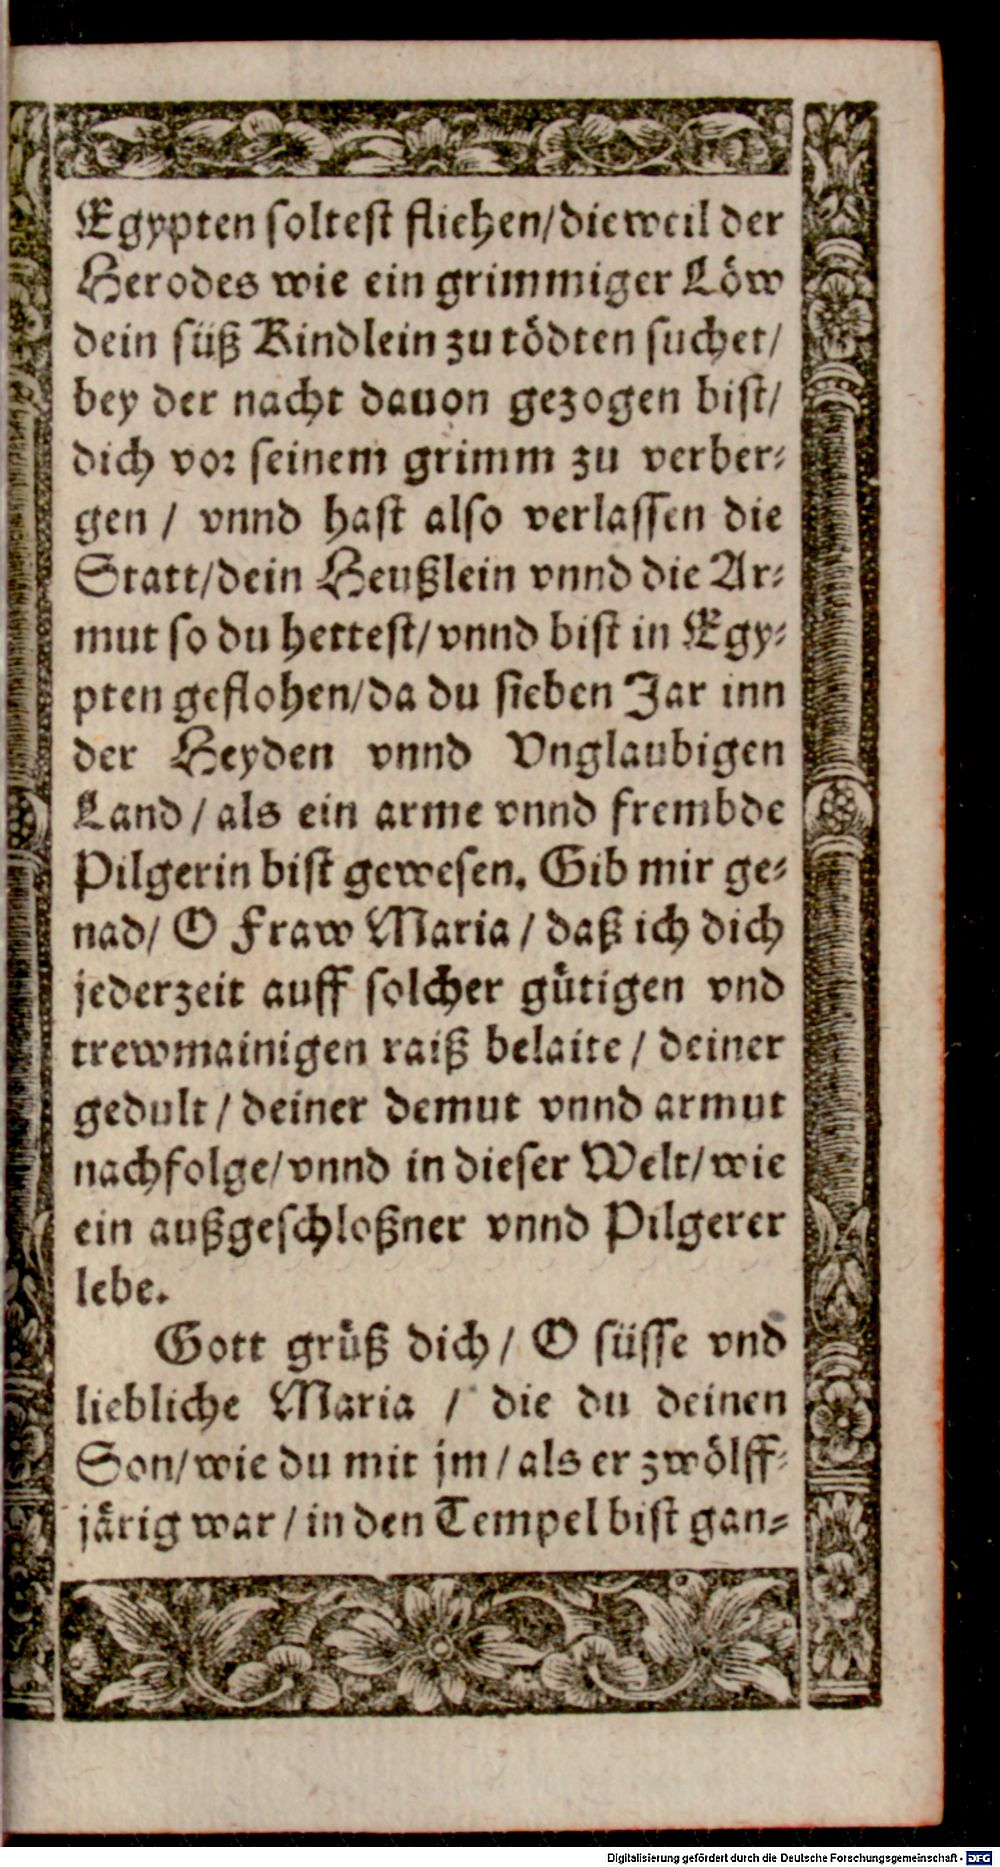 Egypten soltest fliehen/dieweil der
Herodes wie ein grimmiger Löw
dein süß Kindlein zu tödten suchet/
bey der nacht dauon gezogen bist/
dich vor seinem grimm zu verber-
gen / vnnd hast also verlassen die
Statt/dein Heußlein vnnd die Ar-
mut so du hettest/vnnd bist in Egy-
pten geflohen/da du sieben Jar inn
der Heyden vnnd Vnglaubigen
Land / als ein arme vnnd frembde
Pilgerin bist gewesen. Gib mir ge-
nad/ O Fraw Maria / daß ich dich
jederzeit auff solcher gütigen vnd
trewmainigen raiß belaite / deiner
gedult / deiner demut vnnd armut
nachfolge/vnnd in dieser Welt/wie
ein außgeschloßner vnnd Pilgerer
lebe.
Gott grüß dich / O süsse vnd
liebliche Maria / die du deinen
Son/wie du mit jm / als er zwölff-
järig war / in den Tempel bist gan-
Digitalisierung gefördert durch die Deutsche Forschungsgemeinschaft - DFG